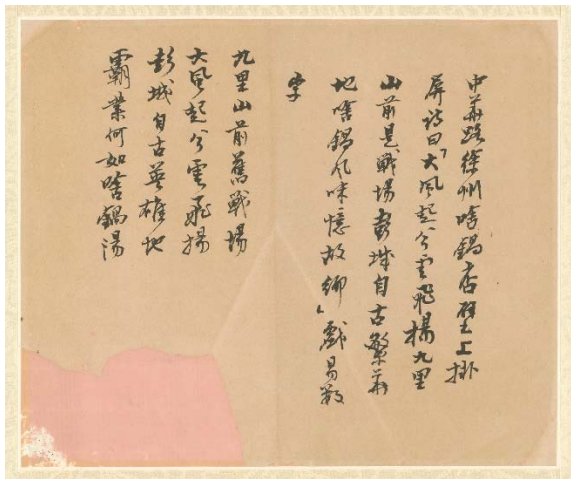 中華路徐州啥鍋店壁上掛
屏詩曰「大風起兮雲飛揚九里
山前是戰場彭城自古繁華
地啥鍋風味憶故鄉」戲易數
字
九里山前舊戰場
大風起兮雲飛揚
彭城自古英雄地
霸業何如啥鍋湯